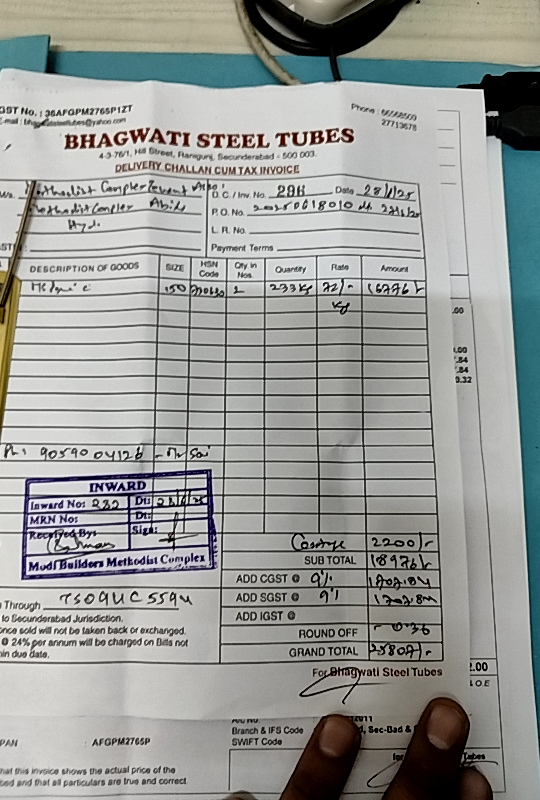 GST No. : 36AFGPM2765P1ZT
Phone : 66568509
27713678
BHAGWATI STEEL TUBES
4-3-76/1, Hill Street, Ranigunj, Secunderabad - 500 003.
DELIVERY CHALLAN CUM TAX INVOICE
D.C / Inv. No. 286 Date 28/6/25
P.O. No. 20250618010
L. R. No.
Payment Terms
Methodist Complex Abids
Hyd.
DESCRIPTION OF GOODS SIZE HSN Code Qty. in Nos. Quantity Rate Amount
150 2 233 Kg 72/- 16776/-
Kg
Ph: 9059004126 - Mr Sai
INWARD
Inward No: 232 Dt:
MRN No: Dt:
Received By: Sign:
Modi Builders Methodist Complex
2200/-
SUB TOTAL 18976/-
ADD CGST @ 9% 1707.84
ADD SGST @ 9% 1707.84
ADD IGST @
Through TS09UC5594
to Secunderabad Jurisdiction.
once sold will not be taken back or exchanged.
@ 24% per annum will be charged on Bills not
in due date.
ROUND OFF
GRAND TOTAL
For Bhagwati Steel Tubes
.00
.00
.84
.84
0.32
2.00
PAN : AFGPM2765P
Branch & IFS Code
SWIFT Code
that this invoice shows the actual price of the
and that all particulars are true and correct.